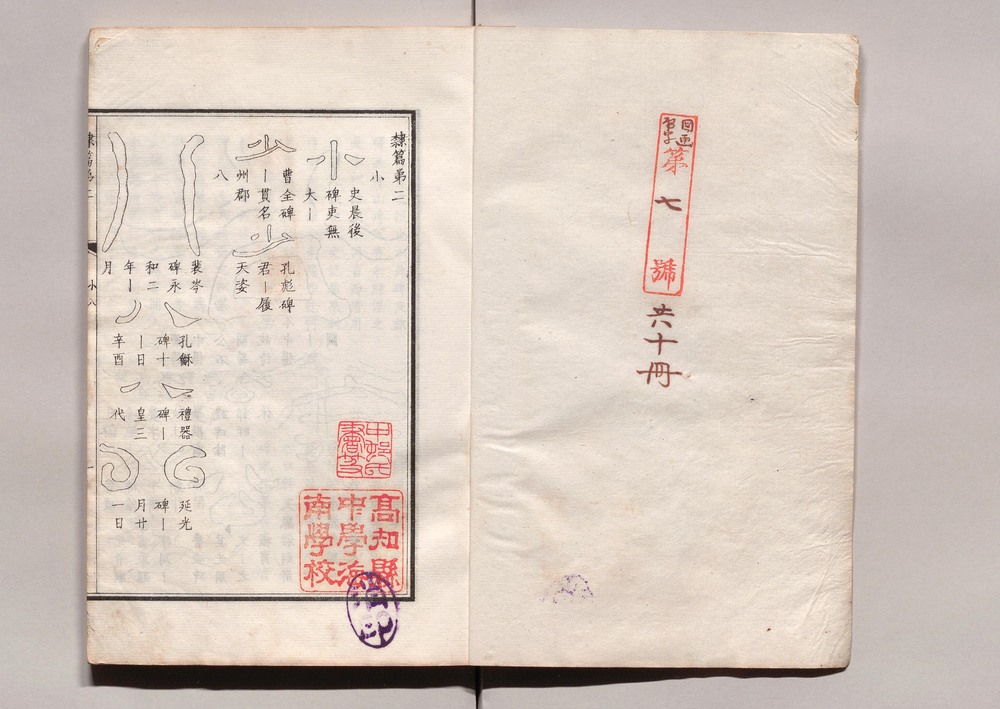 第七號
共十冊
隸篇第二
小
小
史晨後
碑吏無
大丨
少
曹全碑
丨貫名
州郡
少
孔彪碑
君丨履
天姿
八
八
裴岑
碑永
和二
年丨
月
八
孔龢
碑十
丨日
辛酉
八
禮器
碑丨
皇三
代
延光
碑丨
月廿
一日
隸篇第二
小八
高知縣
中學海
南學校